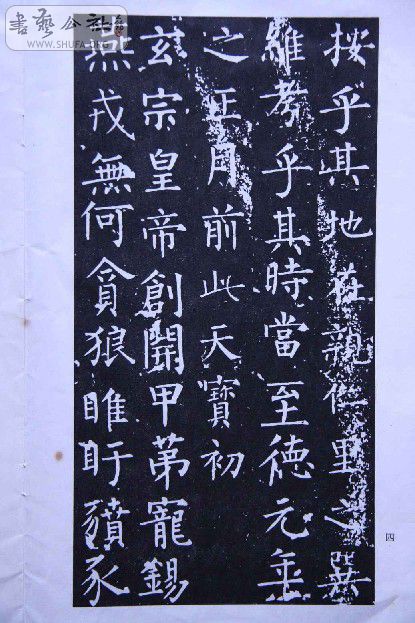 書藝公社
WWW.SHUFA.ORG
按乎其地在親仁里之巽
維考乎其時當至德元年
之正月前此天寶初
玄宗皇帝創開甲第寵錫
燕戎無何貪狼睢盱豶豕
四